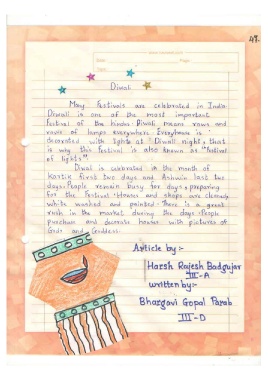 49.
Diwali
Many Festivals are celebrated in India
Diwali is one of the most important
Festival of the hindus Diwali means rows and
rows of lamps everywhere Everyhouse is
decorated with lights at Diwali night, that
is why this festival is also known as "Festival
of lights"
Diwali is celebrated in the month of
Kartik first two days and Ashwin last two
days. People remain busy for days, preparing
for the Festival. Houses and shops are cleaned,
white washed and painted. There is a great
rush in the market during the days. People
purchase and decorate houses with pictures of
Gods and Goddess.
Article by :-
Harsh Rajesh Badgujar
III-A
written by:-
Bhargavi Gopal Parab
III-D